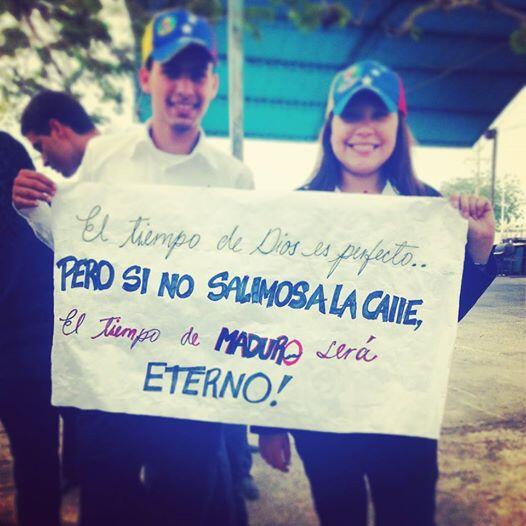 El tiempo de Dios es perfecto..
PERO SI NO SALIMOS A LA CAllE,
El tiempo de MADURO será
ETERNO!